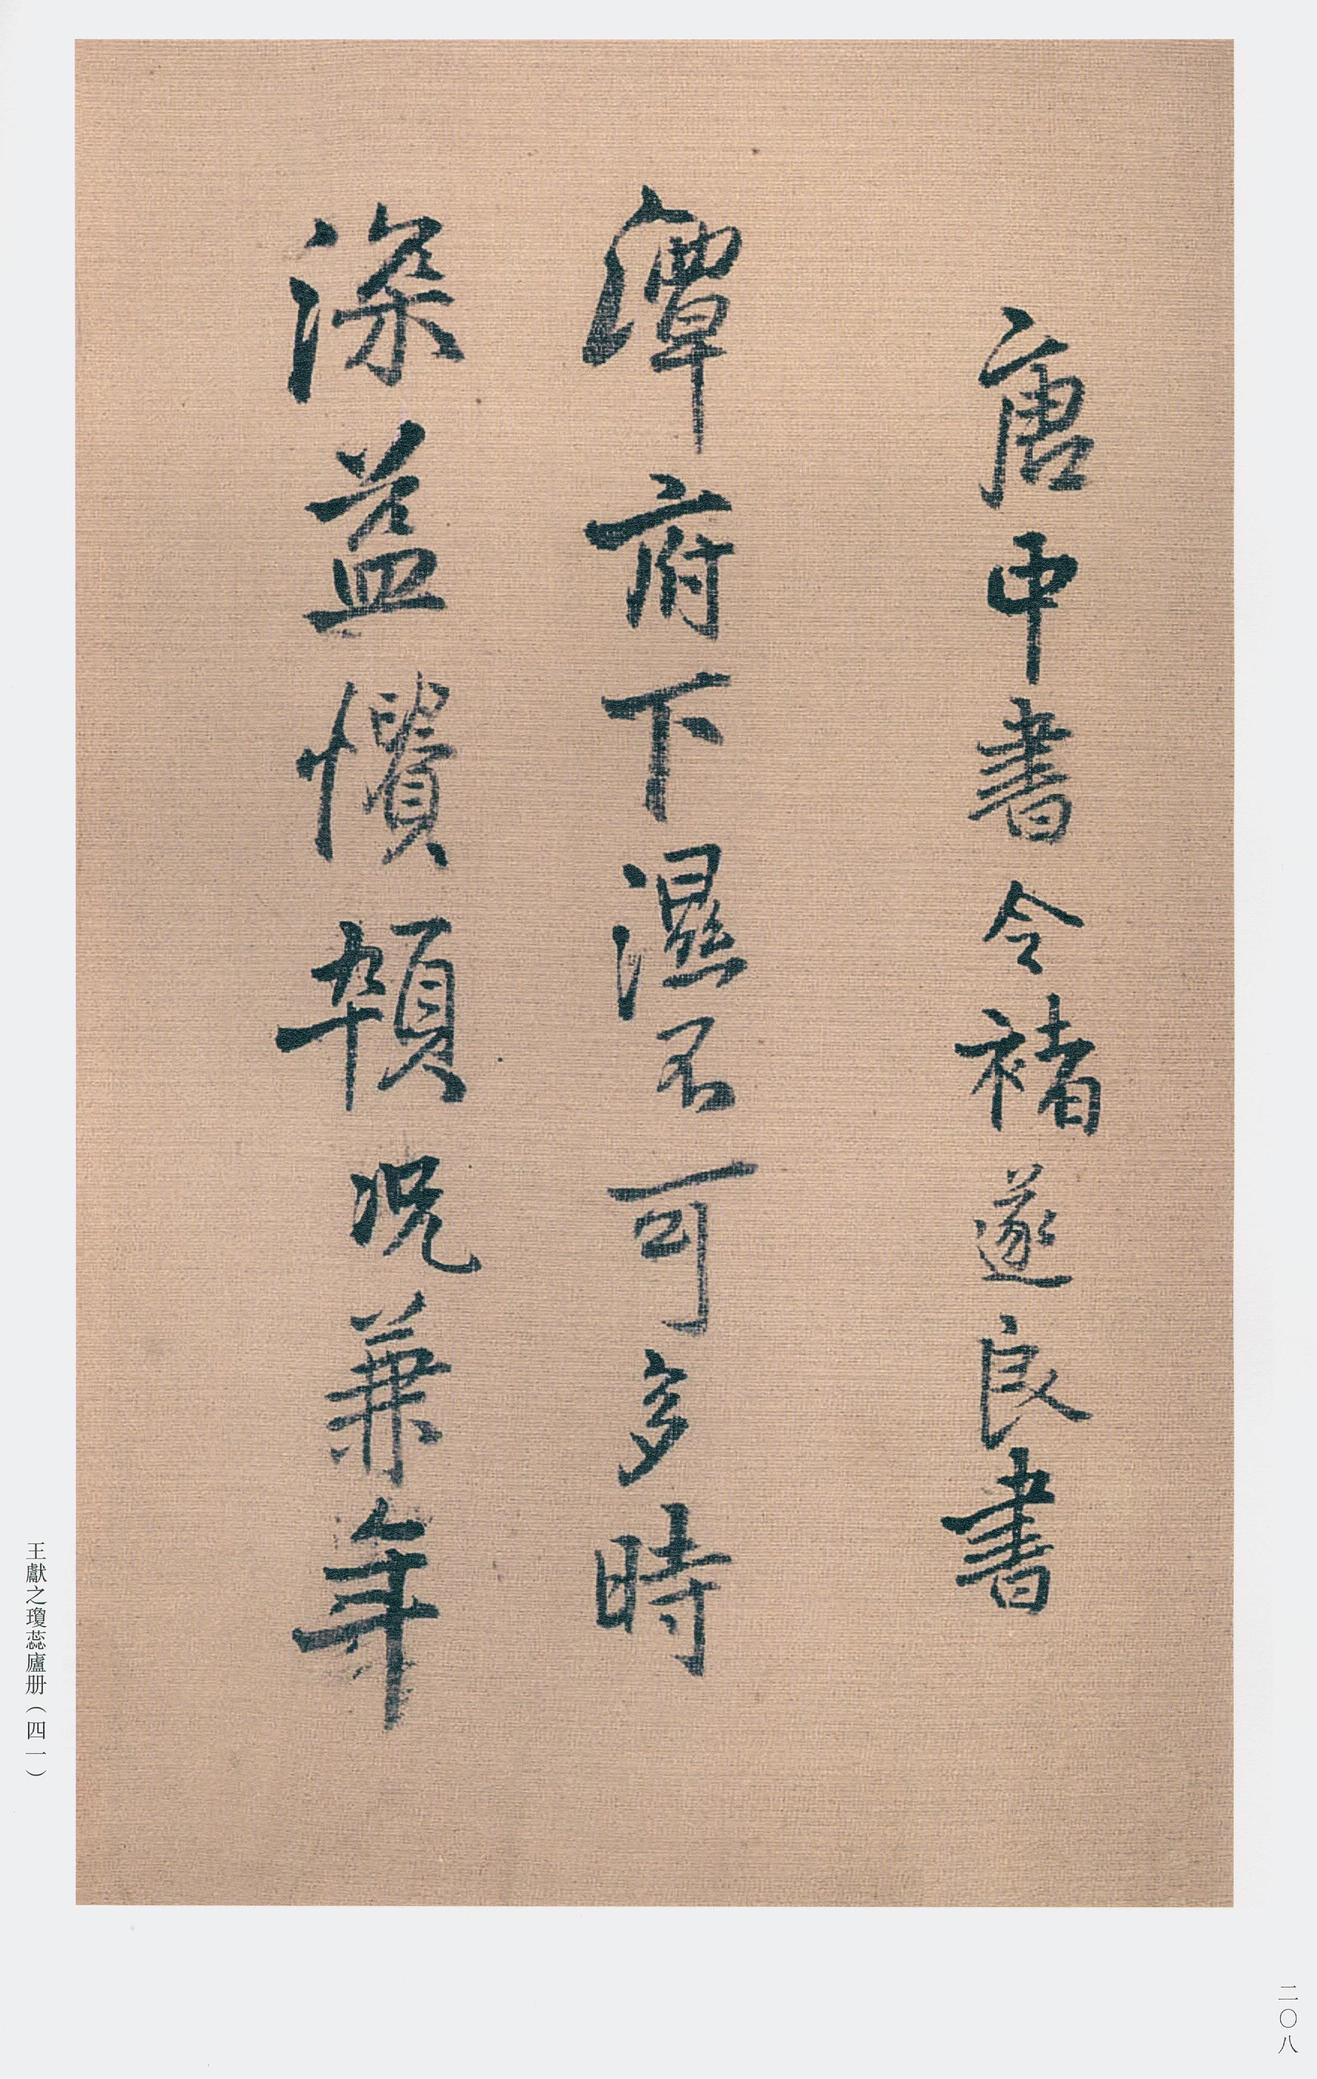 唐中書令褚遂良書
潭府下濕不可多時
深益憒頓況兼年
王獻之瓊蕊廬册（四一）
二〇八